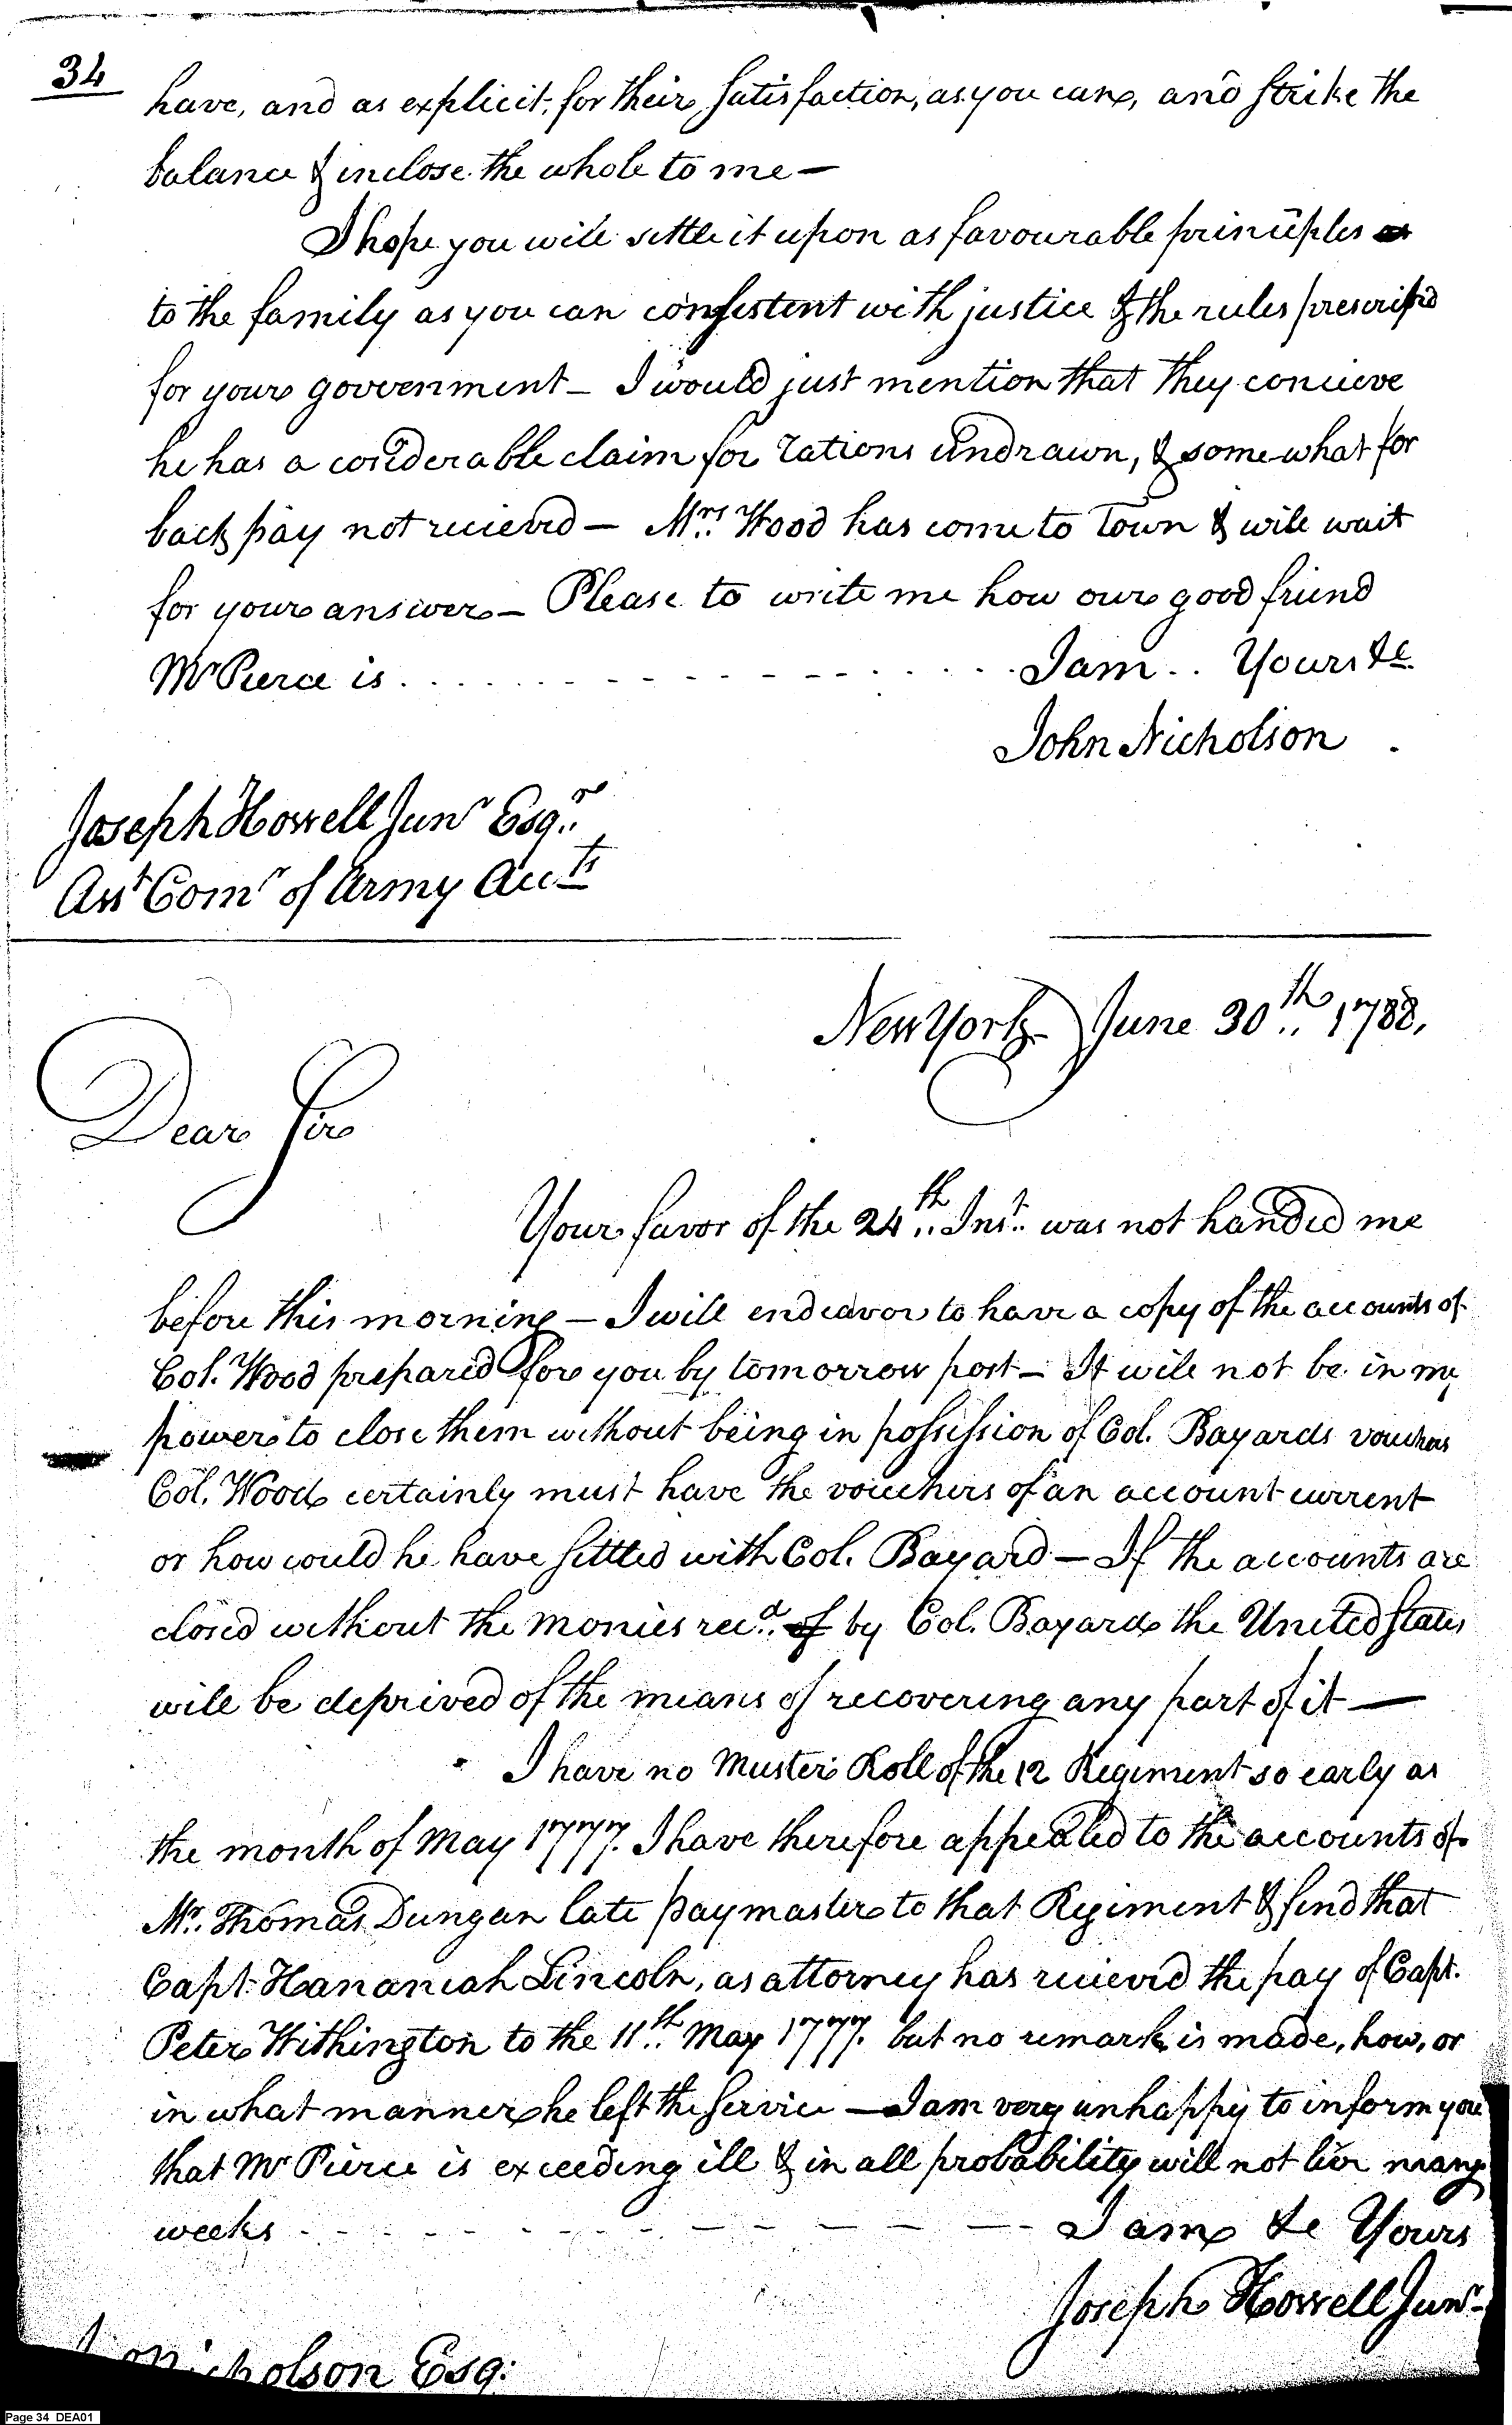 34
have, and as explicit, for their satisfaction, as you can, and strike the
balance & inclose the whole to me —
I hope you will settle it upon as favourable principles as
to the family as you can consistent with justice & the rules prescrib'd
for your government — I would just mention that they concieve
he has a coniderable claim for rations undrawn, & somewhat for
back pay not recieved — Mrs. Wood has come to Town & will wait
for your answer — Please to write me how our good friend
Mr Pierce is . . . . . . . . . . . . . . . . I am . . Yours &c
John Nicholson .
Joseph Howell Junr Esqr.
Asst Comr of Army Accts
New York June 30th.. 1788,
Dear Sir
Your favor of the 24th.. Inst.. was not handed me
before this morning — I will endeavor to have a copy of the accounts of
Col. Wood prepared for you by tomorrow post — It will not be in my
power to close them without being in possession of Col. Bayards vouchers
Col. Wood certainly must have the vouchers of an account current
or how could he have settled with Col. Bayard — If the accounts are
closed without the monies recd.. of by Col. Bayard the United States
will be deprived of the means of recovering any part of it —
I have no Muster Roll of the 12 Regiment so early as
the month of May 1777. I have therefore appealed to the accounts of
Mr. Thomas Dungan late paymaster to that Regiment & find that
Capt. Hananiah Lincoln, as attorney has recieved the pay of Capt.
Peter Withington to the 11th.. May 1777. but no remark is made, how, or
in what manner he left the service — I am very unhappy to inform you
that Mr Pierce is exceeding ill & in all probability will not live many
weeks - - - - - - - - - - I am &c Yours
Joseph Howell Junr
Nicholson Esq:
Page 34 DEA01